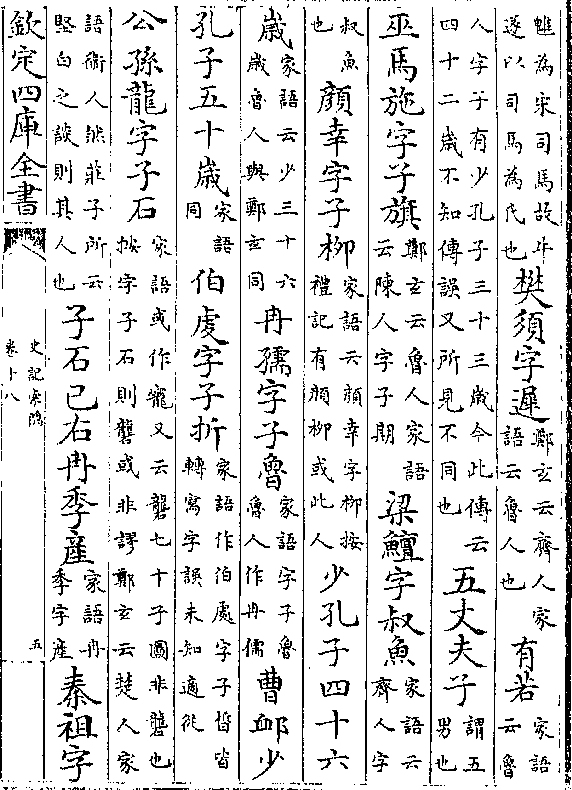 雖為宋司馬故牛遂以司馬為氏也樊須字遲鄭玄云齊人家語云魯人也有若家語云魯
人字子有少孔子三十三歲今此傳云四十二歲不知傳誤又所見不同也五丈夫子謂五男也
巫馬施字子旗鄭玄云魯人家語云陳人字子期梁鱣字叔魚家語云齊人字
叔魚也顔幸字子柳家語云顔幸字柳按禮記有顔柳或此人少孔子四十六
歲家語云少三十六歲魯人與鄭玄同冉孺字子魯家語字子魯魯人作冉儒曹卹少
孔子五十歲家語同伯虔字子折家語作伯處字子皙皆轉寫字誤未知適從
公孫龍字子石家語或作寵又云礱七十子圖非礱也按字子石則礱或非謬鄭玄云楚人家
語衛人然莊子所云堅白之談則其人也子石已右冉季産家語冉季字産秦祖字
欽定四庫全書
史記索隱
卷十八
五